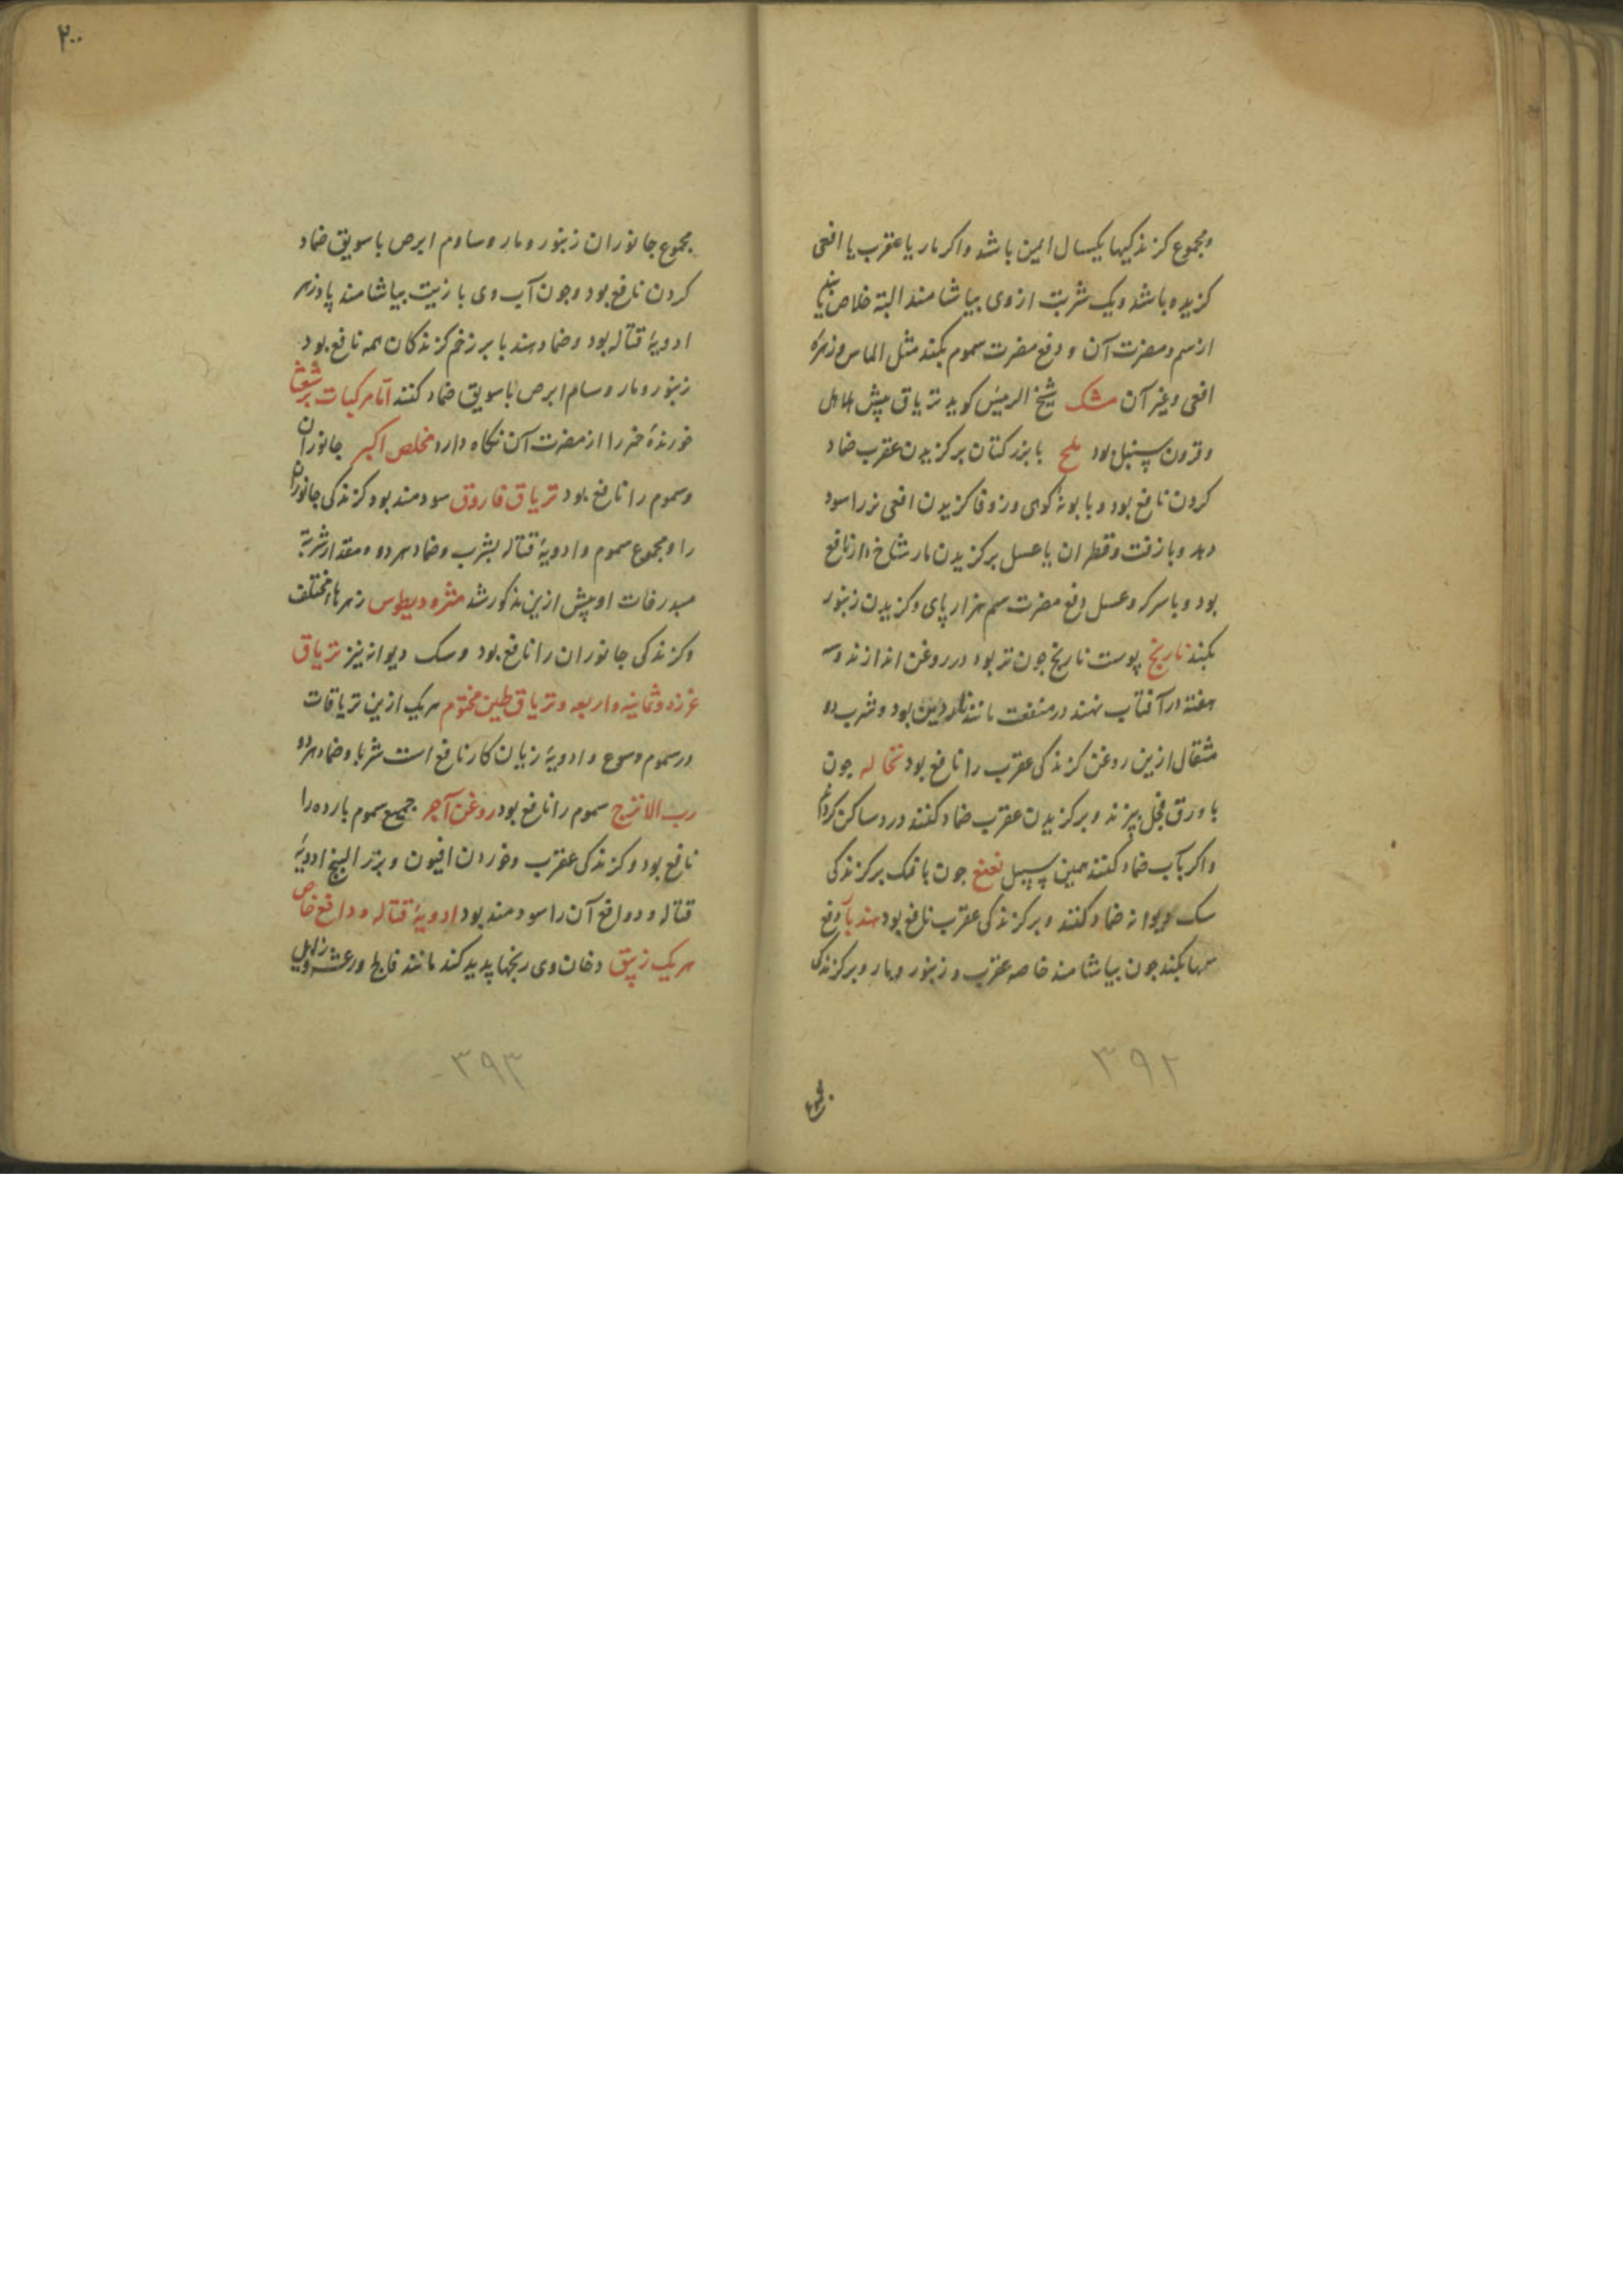 ومجموع کزندکیها یکسال ایمن باشد واکر مار یا عقرب یا افعی
کزیده باشد ویک شربت ازوی بیاشامند البته خلاص یابد
از سم ومضرت آن و دفع مضرت سموم بکند مثل الماس وزهرهٔ
افعی وغیر آن مشک شیخ الرییس کوید تریاق پیش هلاهل
وقرون سنبل بود ملح با بزر کتان بر کزیدن عقرب ضماد
کردن نافع بود وبا بونهٔ کوهی وزوفا کزیدن افعی نر را سود
دهد وبا زفت وقطران یا عسل بر کزیدن مار شاخ دار نافع
بود وبا سرکه وعسل دفع مضرت سم هزار پای وکزیدن زنبور
بکند نارنج پوست نارنج جون تر بود در روغن اندازند وسه
هفته در آفتاب نهند در منفعت مانند ناردین بود وشرب دو
مثقال ازین روغن کزندکی عقرب را نافع بود نخاله جون
با ورق فجل بپزند وبر کزیدن عقرب ضماد کنند درد ساکن کرداند
واکر بآب ضماد کنند همین سبیل نعنع جون با نمک بر کزندکی
سک دیوانه ضماد کنند وبر کزندکی عقرب نافع بود هندبا دفع
سمها بکند جون بیاشامند خاصه عقرب وزنبور ومار وبر کزندکی
۳۹۲
۲۰۰
مجموع جانوران زنبور ومار وسام ابرص با سویق ضماد
کردن نافع بود وجون آب وی با زیت بیاشامند پادزهر
ادویهٔ قتاله بود وضماد هندبا بر زخم کزندکان همه نافع بود
زنبور ومار وسام ابرص با سویق ضماد کنند اما مرکبات برشعثا
خورندهٔ خود را از مضرت آن نکاه دارد مخلص اکبر جانوران
وسموم را نافع بود تریاق فاروق سودمند بود کزندکی جانوران
را ومجموع سموم وادویهٔ قتاله بشرب وضماد هر دو ومقدار شربة
مبدرقات او پیش ازین مذکور شد مثرودیطوس زهرهاء مختلف
وکزندکی جانوران را نافع بود وسک دیوانه نیز تریاق
عزره وثمانیه واربعه وتریاق طین مختوم هر یک ازین تریاقات
در سموم وادویهٔ زیان کار نافع است شربا وضماد هر دو
رب الاترج سموم را نافع بود روغن آجر جمیع سموم بارده را
نافع بود وکزندکی عقرب وخوردن افیون وبزر البنج ادویهٔ
قتاله ودوافع آن را سودمند بود ادویهٔ قتاله ودافع خاص
هر یک زیبق دخان وی رنجها پدید کند مانند فالج ورعشه
۳۹۳